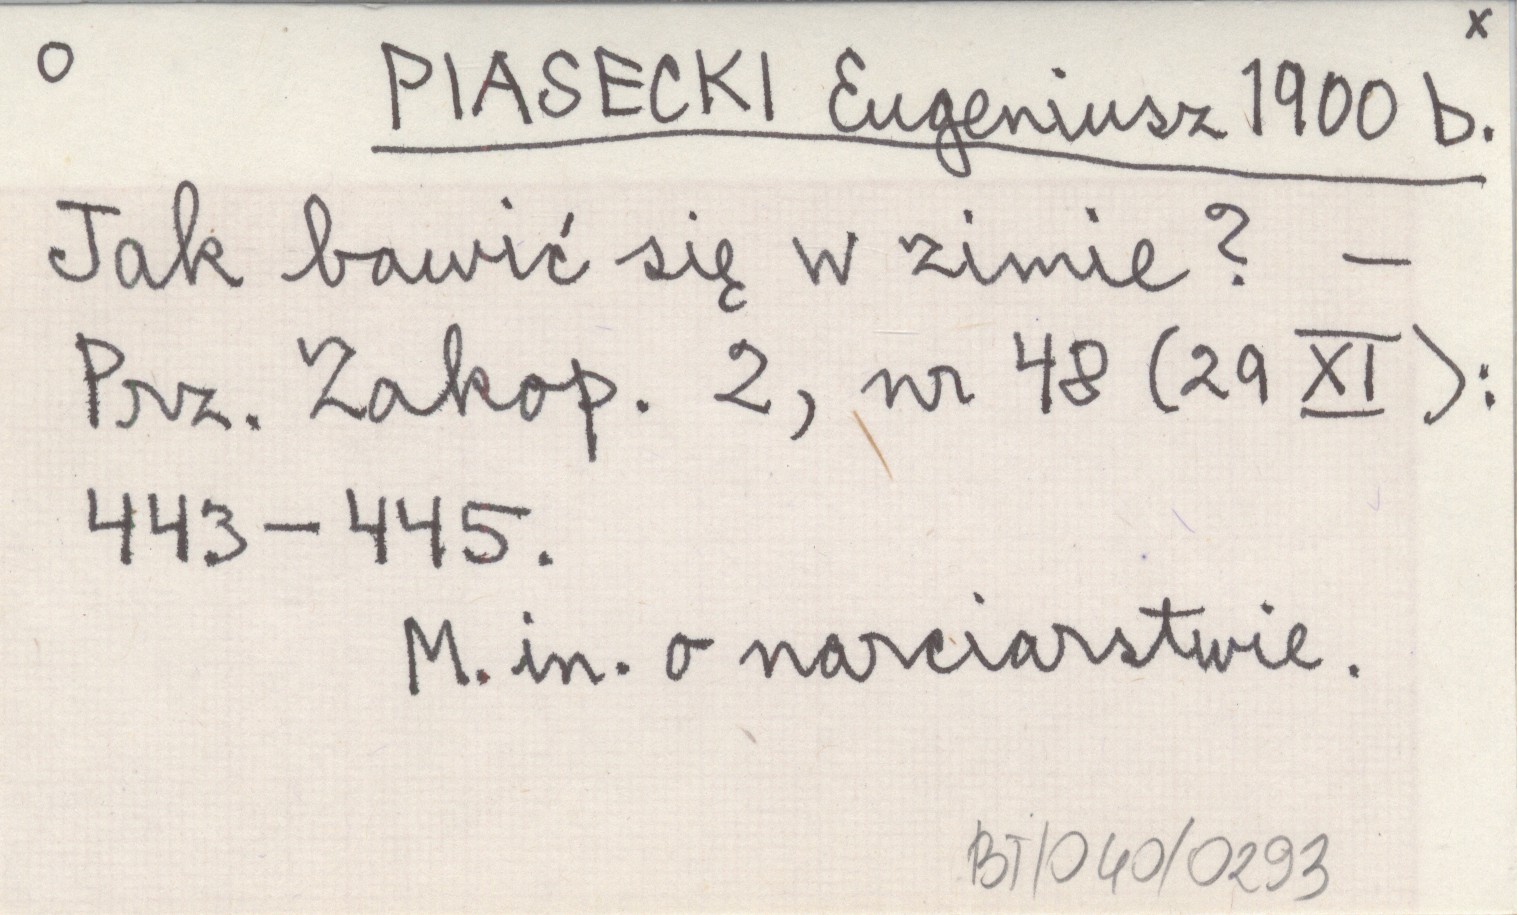 o
x
PIASECKI Eugeniusz 1900 b.
Jak bawić się w zimie? –
Prz. Zakop. 2, nr 48 (29 XI):
443–445.
M. in. o narciarstwie.
BT/040/0293